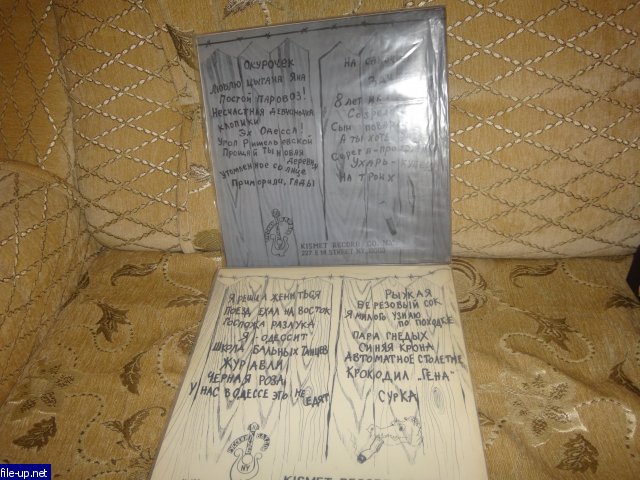 Окурочек
Люблю цыгана Яна
Постой паровоз!
Несчастная девчоночка
Клопики
Эх Одесса!
Угол Ришельевской
Прощай ты новая
деревня
Утомленное солнце
Приморили, гады
На
8 лет
Сын
А ты
Ухарь-купец
На троих
KISMET RECORD CO. NY
227 E 14 STREET NY, 10003
Я решил жениться
Поезд ехал на восток
Госпожа разлука
Я одессит
Школа бальных танцев
Журавли
Черная роза
У нас в Одессе это не едят
Рыжая
Березовый сок
Я милого узнаю
по походке
Пара гнедых
Синяя крона
Автоматное столетие
Крокодил „Гена"
Сурка
NY
KISMET RECORD
file-up.net